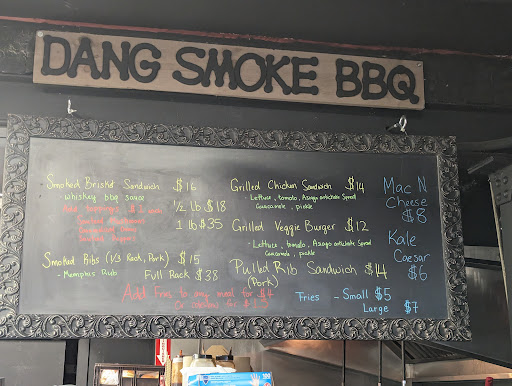 DANG SMOKE BBQ
Smoked Brisket Sandwich $16
whiskey bbq sauce
1/2 lb $18
1 lb $35
Smoked Ribs (1/3 Rack, Pork) $15
- Memphis Rub
Full Rack $38
Add Fries to any meal for $4
Grilled Chicken Sandwich $14
- Lettuce, tomato, Asiago artichoke Spread
Guacamole, pickle
Grilled Veggie Burger $12
- Lettuce, tomato, Asiago artichoke Spread
Guacamole, pickle
Pulled Rib Sandwich $14
(Pork)
Fries - Small $5
Large $7
Mac N
Cheese
$8
Kale
Caesar
$6